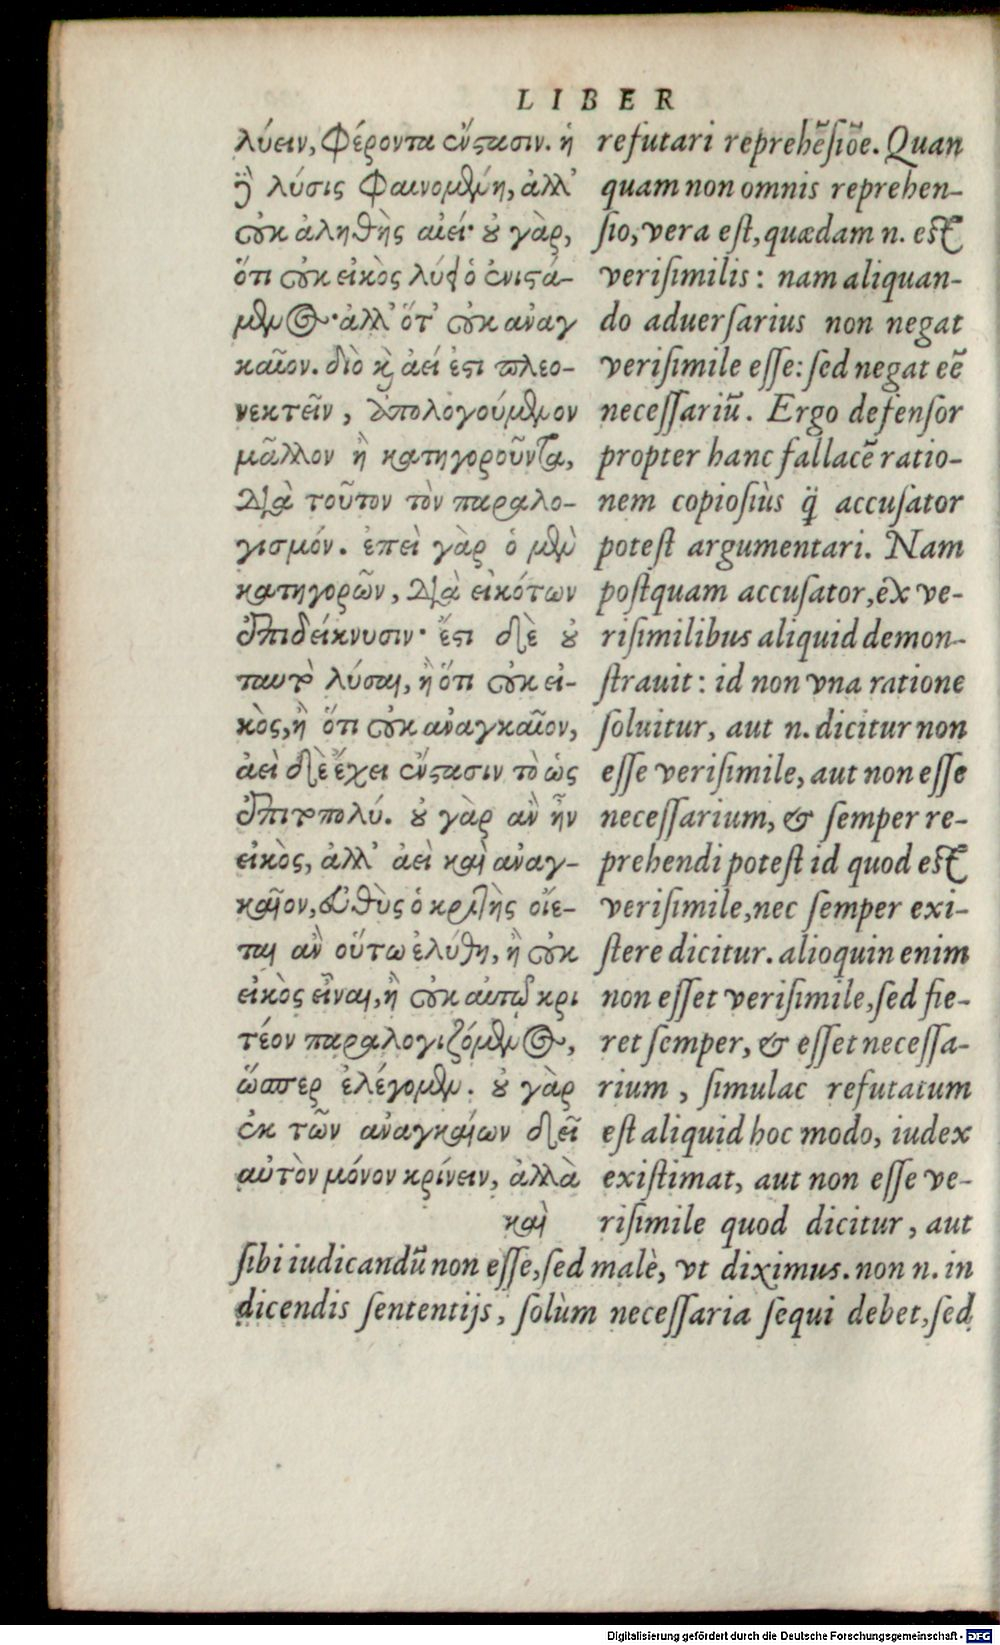 LIBER
λύειν, φέροντα ἔνστασιν. ἡ
ἢ λύσις φαινομένη, ἀλλ'
οὐκ ἀληθὴς αἰεί· οὐ γὰρ,
ὅτι οὐκ εἰκὸς λύει ὁ ἐνιστά-
μενος· ἀλλ' ὅτ' οὐκ αναγ
καῖον. διὸ καὶ ἀεί ἐστι πλεο-
νεκτεῖν, ἀπολογούμενον
μᾶλλον ἢ κατηγοροῦντα,
διὰ τοῦτον τὸν παραλο-
γισμόν. ἐπεὶ γὰρ ὁ μὲν
κατηγορῶν, διὰ εἰκότων
ἐπιδείκνυσιν· ἔστι δὲ οὐ
ταυτὸ λύσαι, ἢ ὅτι οὐκ εἰ-
κὸς, ἢ ὅτι οὐκ αναγκαῖον,
ἀεὶ δὲ ἔχει ἔνστασιν τὸ ὡς
ἐπιτοπολύ. οὐ γὰρ αν ἦν
εἰκὸς, ἀλλ' ἀεὶ καὶ αναγ-
καῖον, εὐθὺς ὁ κριτὴς οἴε-
ται αν οὕτω ἐλύθη, ἢ οὐκ
εἰκὸς εἶναι, ἢ οὐκ αὐτῷ κρι
τέον παραλογιζόμενος,
ὥσπερ ἐλέγομεν. οὐ γὰρ
ἐκ τῶν αναγκαίων δεῖ
αὐτὸν μόνον κρίνειν, ἀλλὰ
καὶ
refutari reprehēsiōe. Quan
quam non omnis reprehen-
sio, vera est, quædam n. est
verisimilis: nam aliquan-
do aduersarius non negat
verisimile esse: sed negat eē
necessariū. Ergo defensor
propter hanc fallacē ratio-
nem copiosiùs q̈ accusator
potest argumentari. Nam
postquam accusator, ex ve-
risimilibus aliquid demon-
strauit: id non vna ratione
soluitur, aut n. dicitur non
esse verisimile, aut non esse
necessarium, & semper re-
prehendi potest id quod est
verisimile, nec semper exi-
stere dicitur. alioquin enim
non esset verisimile, sed fie-
ret semper, & esset necessa-
rium, simulac refutatum
est aliquid hoc modo, iudex
existimat, aut non esse ve-
risimile quod dicitur, aut
sibi iudicandū non esse, sed malè, vt diximus. non n. in
dicendis sententijs, solùm necessaria sequi debet, sed
Digitalisierung gefördert durch die Deutsche Forschungsgemeinschaft - DFG